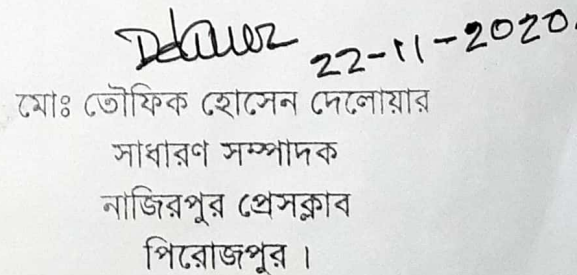 Delawer 22-11-2020.
মোঃ তৌফিক হোসেন দেলোয়ার
সাধারণ সম্পাদক
নাজিরপুর প্রেসক্লাব
পিরোজপুর ।